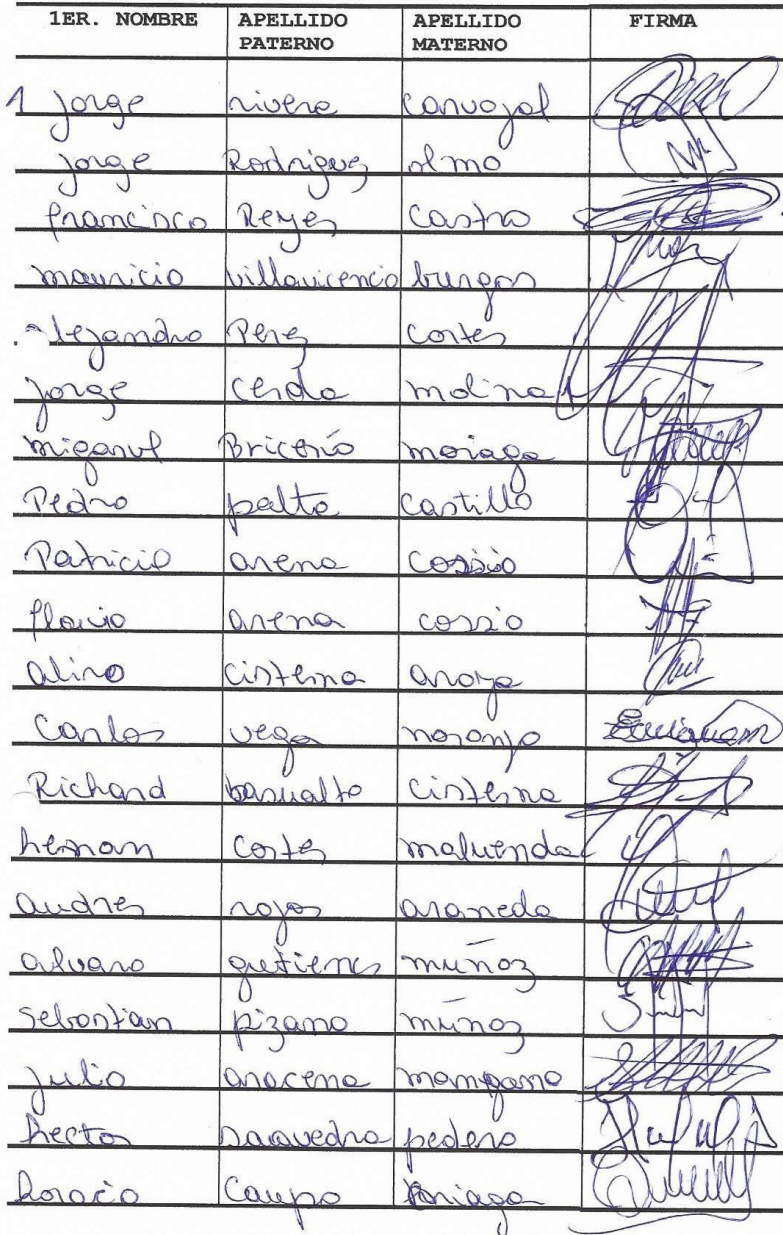 1ER. NOMBRE APELLIDO PATERNO APELLIDO MATERNO FIRMA
1 Jorge rivera carvajal
Jorge Rodriguez olmo
francisco Reyes castro
mauricio villavicencio burgos
alejandro Perez cortes
jorge cerda molina
Briceño
Pedro palta castillo
Patricio arena cossio
flavio arena cossio
aliro cisterna araya
Carlos vega naranjo
Richard basualto cisterna
hernan cortes maluenda
andres rojas araneda
alvaro gutierres muñoz
sebastian pizarro muñoz
julio aracena
hector saavedra pedero
horacio Campo